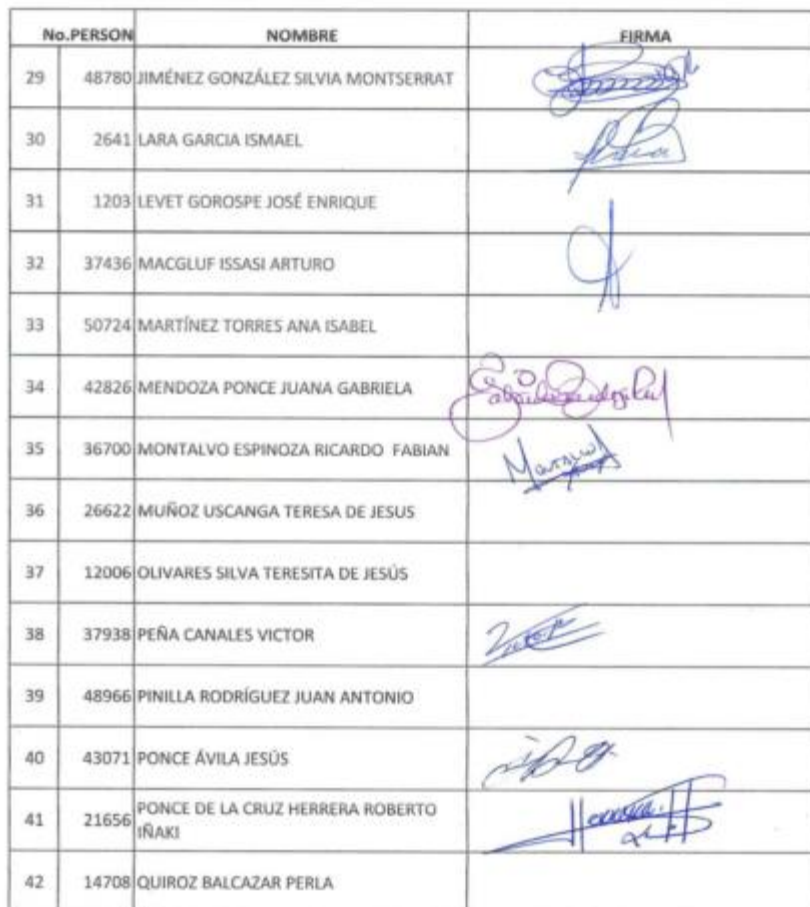 No.PERSON NOMBRE FIRMA
29 48780 JIMÉNEZ GONZÁLEZ SILVIA MONTSERRAT
30 2641 LARA GARCIA ISMAEL
31 1203 LEVET GOROSPE JOSÉ ENRIQUE
32 37436 MACGLUF ISSASI ARTURO
33 50724 MARTÍNEZ TORRES ANA ISABEL
34 42826 MENDOZA PONCE JUANA GABRIELA
35 36700 MONTALVO ESPINOZA RICARDO FABIAN
36 26622 MUÑOZ USCANGA TERESA DE JESUS
37 12006 OLIVARES SILVA TERESITA DE JESÚS
38 37938 PEÑA CANALES VICTOR
39 48966 PINILLA RODRÍGUEZ JUAN ANTONIO
40 43071 PONCE ÁVILA JESÚS
41 21656 PONCE DE LA CRUZ HERRERA ROBERTO
IÑAKI
42 14708 QUIROZ BALCAZAR PERLA